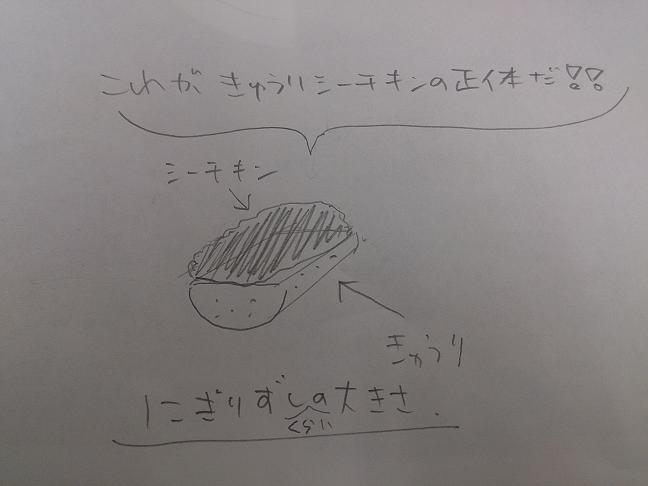 これが きゅうりシーチキンの正体だ!!
シーチキン
きゅうり
にぎりずしくらいの大きさ.